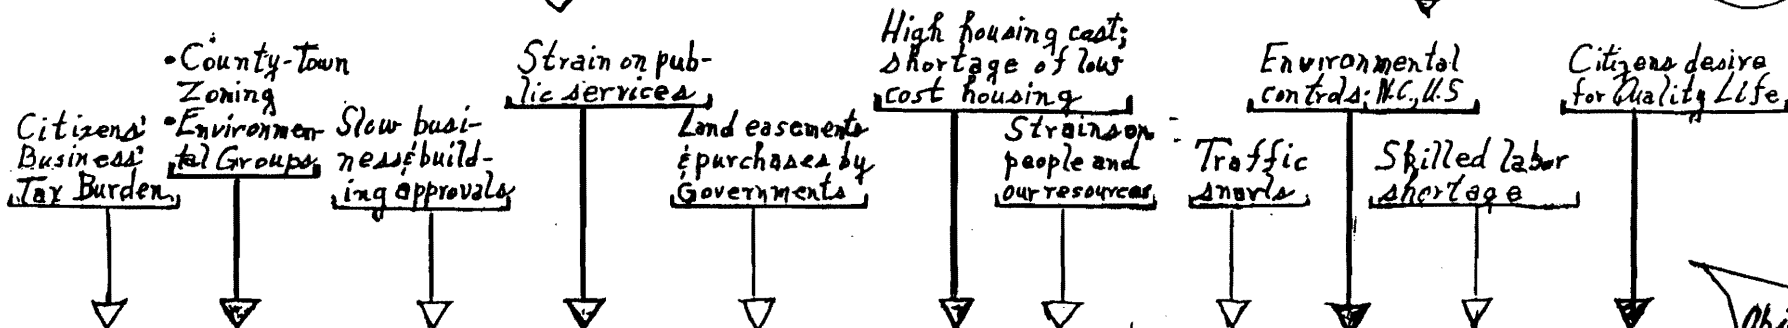 Citizens'
Business'
Tax Burden
•County-Town
Zoning
•Environmen-
tal Groups
Slow busi-
ness & build-
ing approvals
Strain on pub-
lic services
Land easements
& purchases by
Governments
High housing cost;
shortage of low
cost housing
Strains on
people and
our resources
Traffic
snarls
Environmental
controls; N.C., U.S
Skilled labor
shortage
Citizens desire
for Quality Life